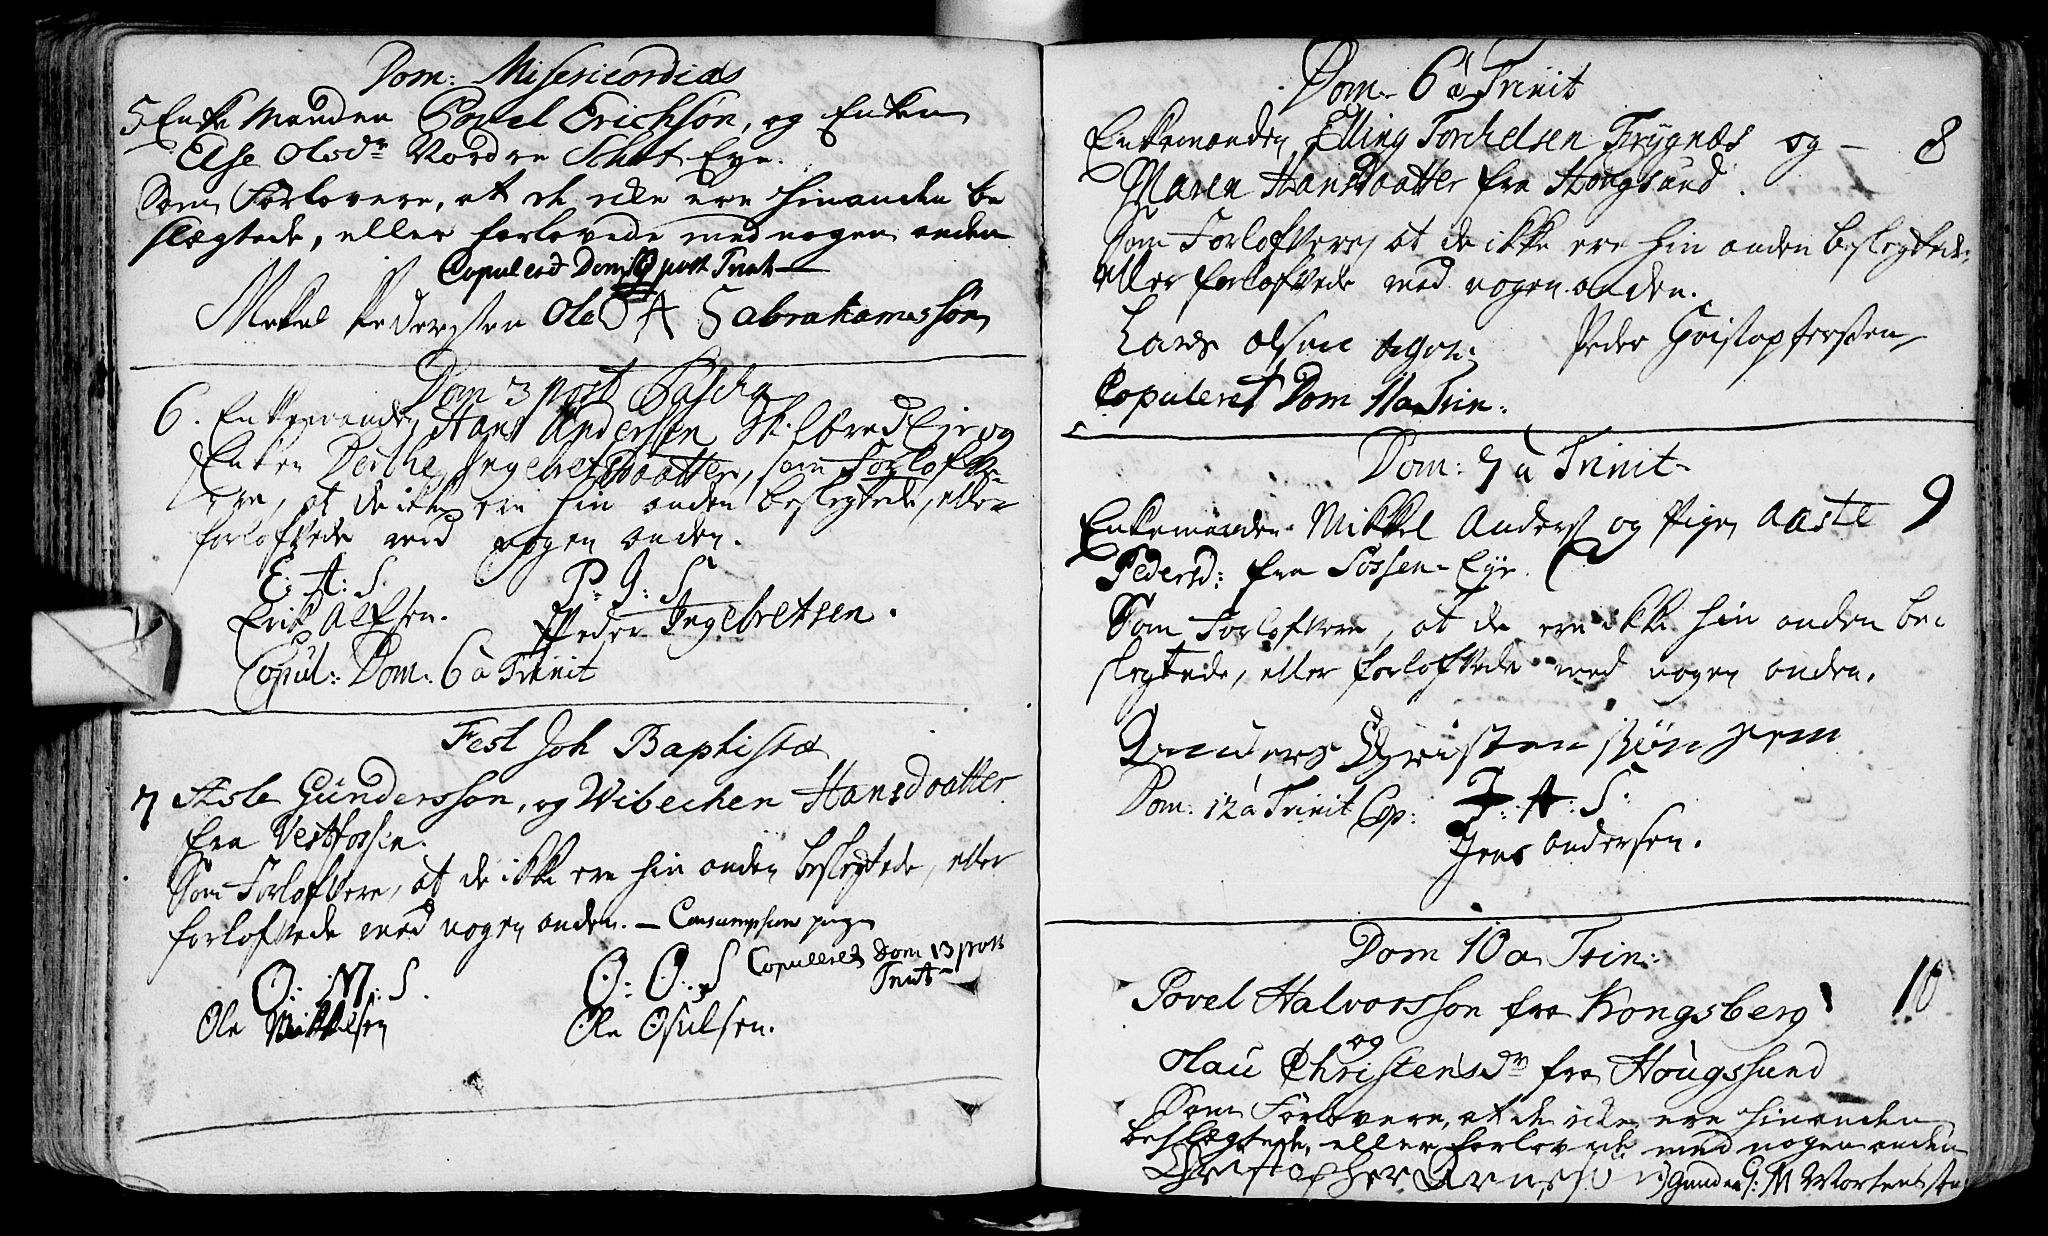 Dom: Misericordias
5 Enke Manden Povel Erichsön, og Enken
Else Olsdr Nordre Schot Eye.
Som Forlovere, at de icke ere hinanden be
slægtede, eller forlovede med nogen anden
Copulerd Dom 10 post Trinit
Mekel Pedersen Ole O A S abrahamssön
Dom 3 post Pascha
6. Enkemanden Hans Andersen Eje og
Enken Berthe Ingebretsdaatter, som Forlofve
ere, at de ikke ere hin anden beslegtede, eller
forlofvede med nogen anden.
E: A: S. P: I: S
Erik Alfsen. Peder Ingebretsen.
Copul: Dom: 6 a Trinit
Fest Joh Baptistæ
7 Asle Gündersson, og Wibechen Hansdaatter
fra Vestfossen.
Som Forlofvere, at de ikke ere hin anden beslegtede, eller
forlofvede med nogen anden. — Consumption
O: M: S. O: O: S Copulered Dom 13 post
Trinit
Ole Mikkelsen Ole Osulsen.
Dom 6 a Trinit
Enkemanden Elling Torchelsen Trygnæs og — 8
Maren Hansdaatter fra Hougsund.
Som Forlofvere, at de ikke ere hin anden beslegtede,
eller forlofvede med nogen anden.
Lars olsen Peder Cristophersen
Copuleret Dom 11 a Trin:
Dom: 7 a Trinit
Enkemanden Mikkel Anders og Pigen Aaste 9
Pedersd: fra Fossen Eye.
Som Forlofvere, at de ere ikke hin anden be
slegtede, eller forlofvede med nogen anden.
Anders Christen sön
Dom: 12 a Trinit Cop: J: A: S:
Jens Andersen.
Dom 10 a Trin:
Povel Halvorsson fra Kongsberg 10
og
Olau Christensdr fra Hougssund
Som Forlovere, at de icke ere hinanden
beslægtede, eller forlovede med nogen anden
Christopher Gunder G: M Mortensøn